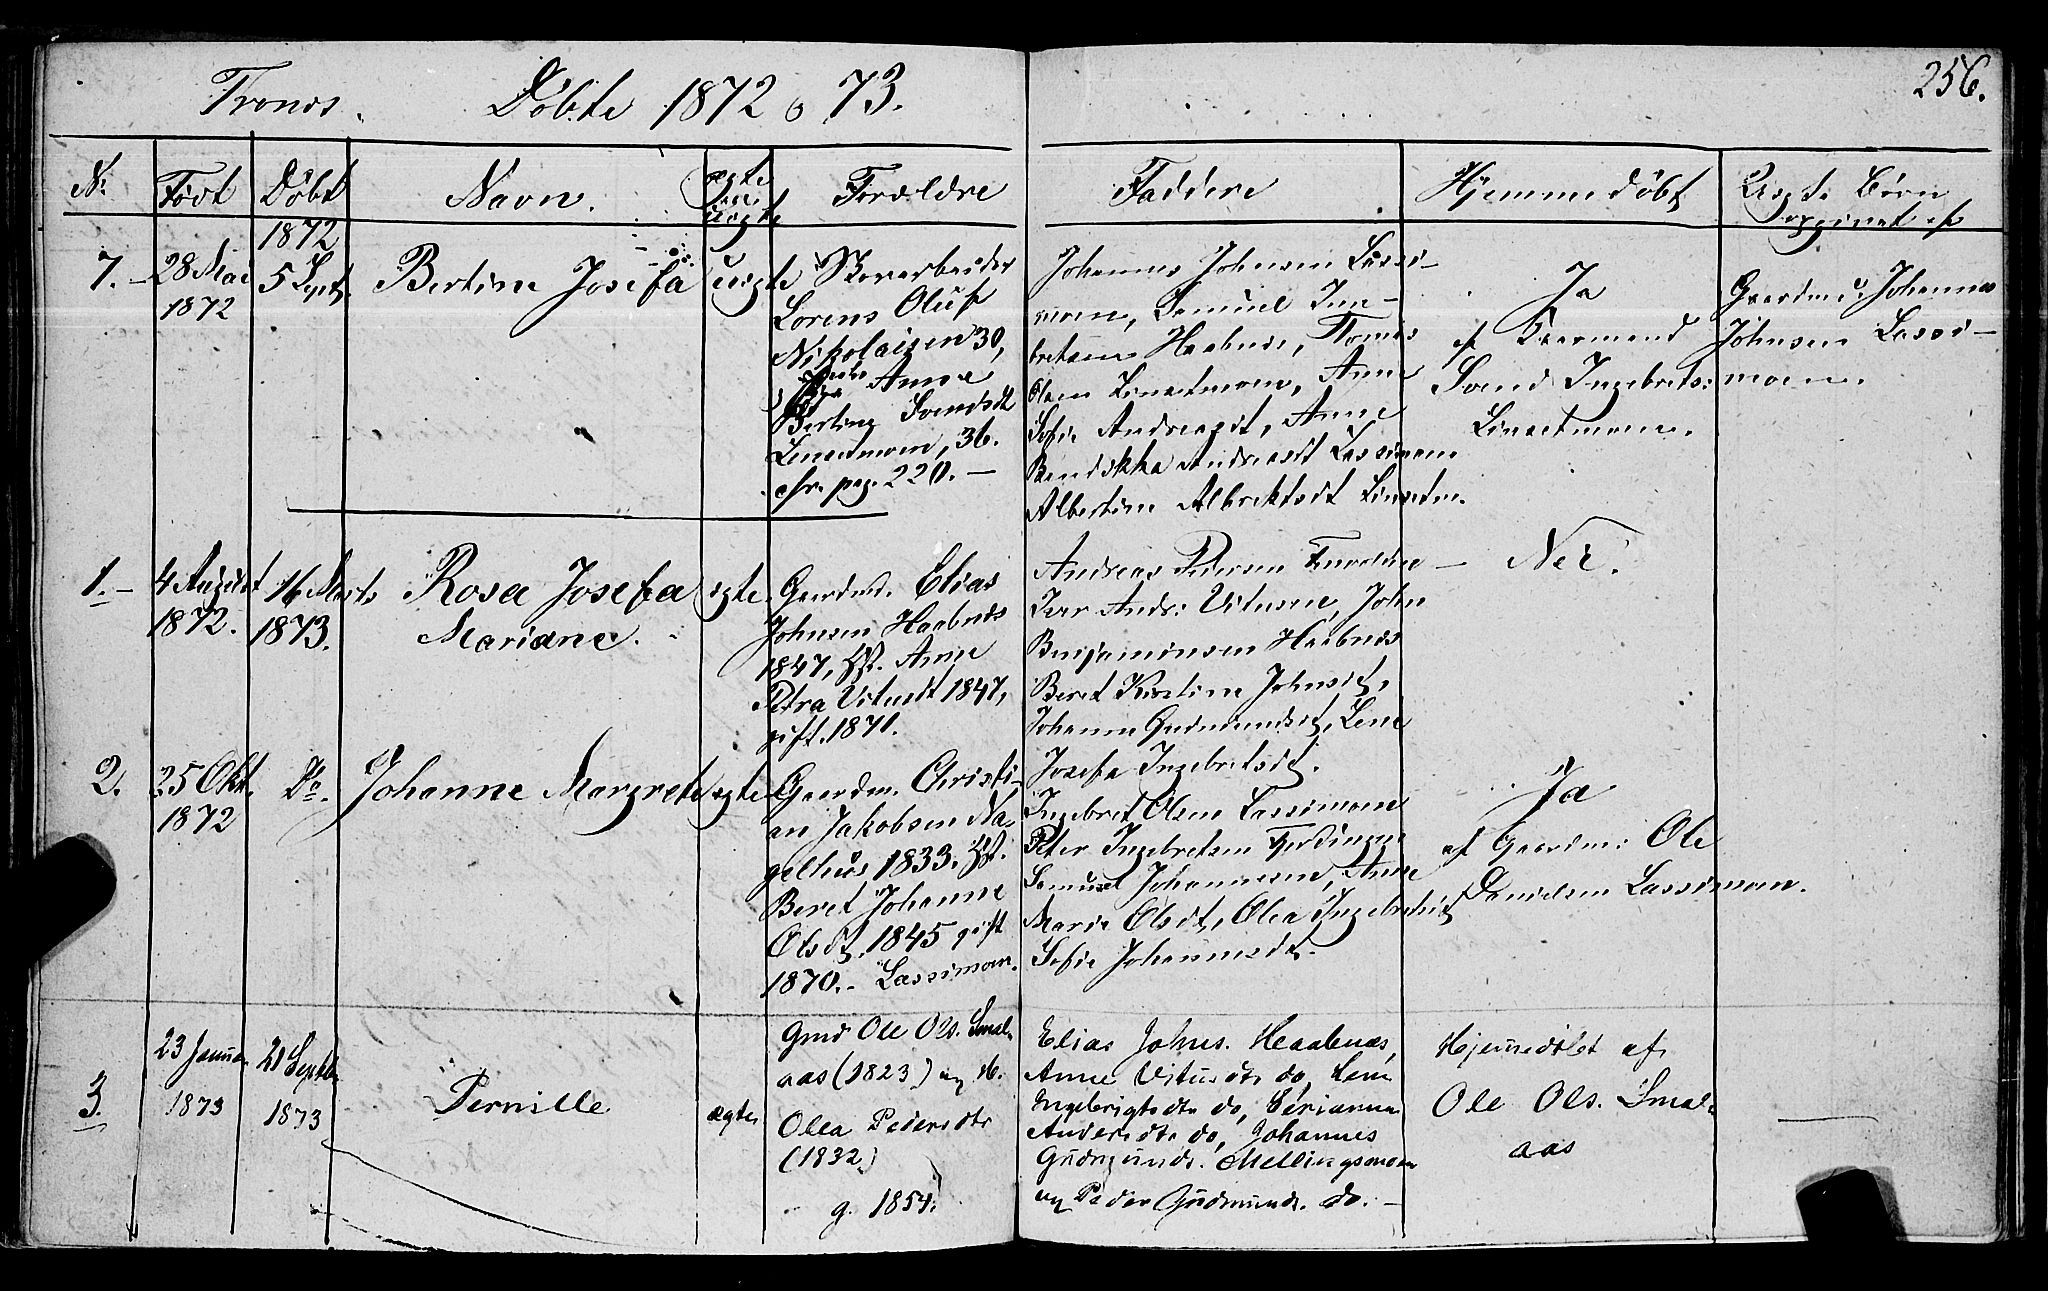 Tronæs. Döbte 1872 o 73.
256.
No
Födt
Döbt
Navn.
ægte
uægte
Forældre
Faddere
Hjemmedöbt
Uægte Börn
opgivet af
1872
7.-
28 Mai
1872
5 Sept.
Bertine Josefa
uægte
Lorens Oluf
Nikolaisen 30,
Anne
Berting Svendsdt
36.
cfr. pag. 220. -
Johannes Johnsen Lassi-
moen, Samuel Inge-
bretsen Haabnæs, Tomas
Olsen Linsetmoen, Anne
Sofie Andreasdt, Anne
Bendikka Andreasdt Lassimoen
Albertine Albrektsdt Linsetm.
Ja
af Gaarmand
Svend Ingebrets:
Linsetmoen.
Gaardmd. Johannes
Johnsen Lassi-
moen.
1.-
4 August
1872.
16 Marts
1873.
Rosa Josefa
Mariane.
ægte.
Gaardmd. Elias
Johnsen Haabnæs
1847, Hst. Anne
Petra Vitusdt 1847,
gift. 1871.
Andreas Pedersen
Andr: Vitusen, John
Benjaminsen Haabnæs
Beret Kirstine Johnsdt,
Johanna Gudmundsdt, Lene
Josefa Ingebretsdt.
Nei.
2.
25 Okt.
1872
Do.
Johanne Margrete
ægte
Gaardm. Christi-
an Jakobsen Na-
gelhus 1833. Hst.
Beret Johanne
Olsdt. 1845 gift
1870.- Lassimoen.
Ingebret Olsen Lassimoen
Peter Ingebretsen
Samuel Johannesen, Anne
Marie Olsdt, Olea Ingebretsdt
Sofie Johannesdt.
Ja
af Gaardm: Ole
Danielsen Lassimoen.
3.
23 Janua.
1873
21 Septbr
1873
Pernille
ægte
Gmd Ole Ols. Smal-
aas (1823) og H.
Olea Pedersdtr
(1832)
g. 1854.
Elias Johns. Haabnæs,
Anne Vitusdtr do, Lene
Ingebrigtsdtr do,
Andersdtr do, Johannes
Gudmunds. Mellingsmoen
og Peder Gudmunds. do. -
Hjemmedöbt af
Ole Ols. Smal-
aas